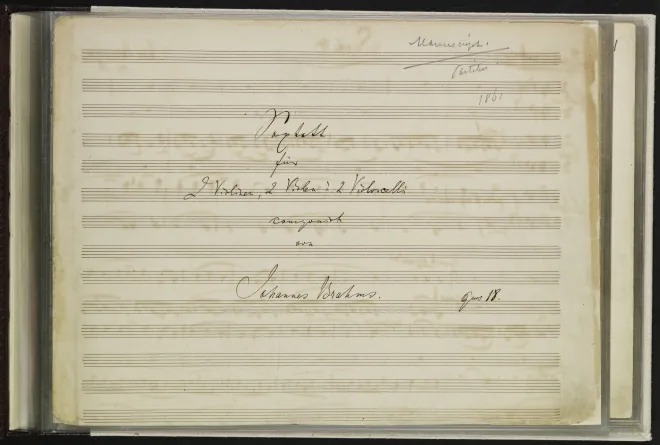 Manuscript.
Partitur
1861
Sextett
für
2 Violinen, 2 Violen & 2 Violoncelli
componirt
von
Johannes Brahms.
opus 18.